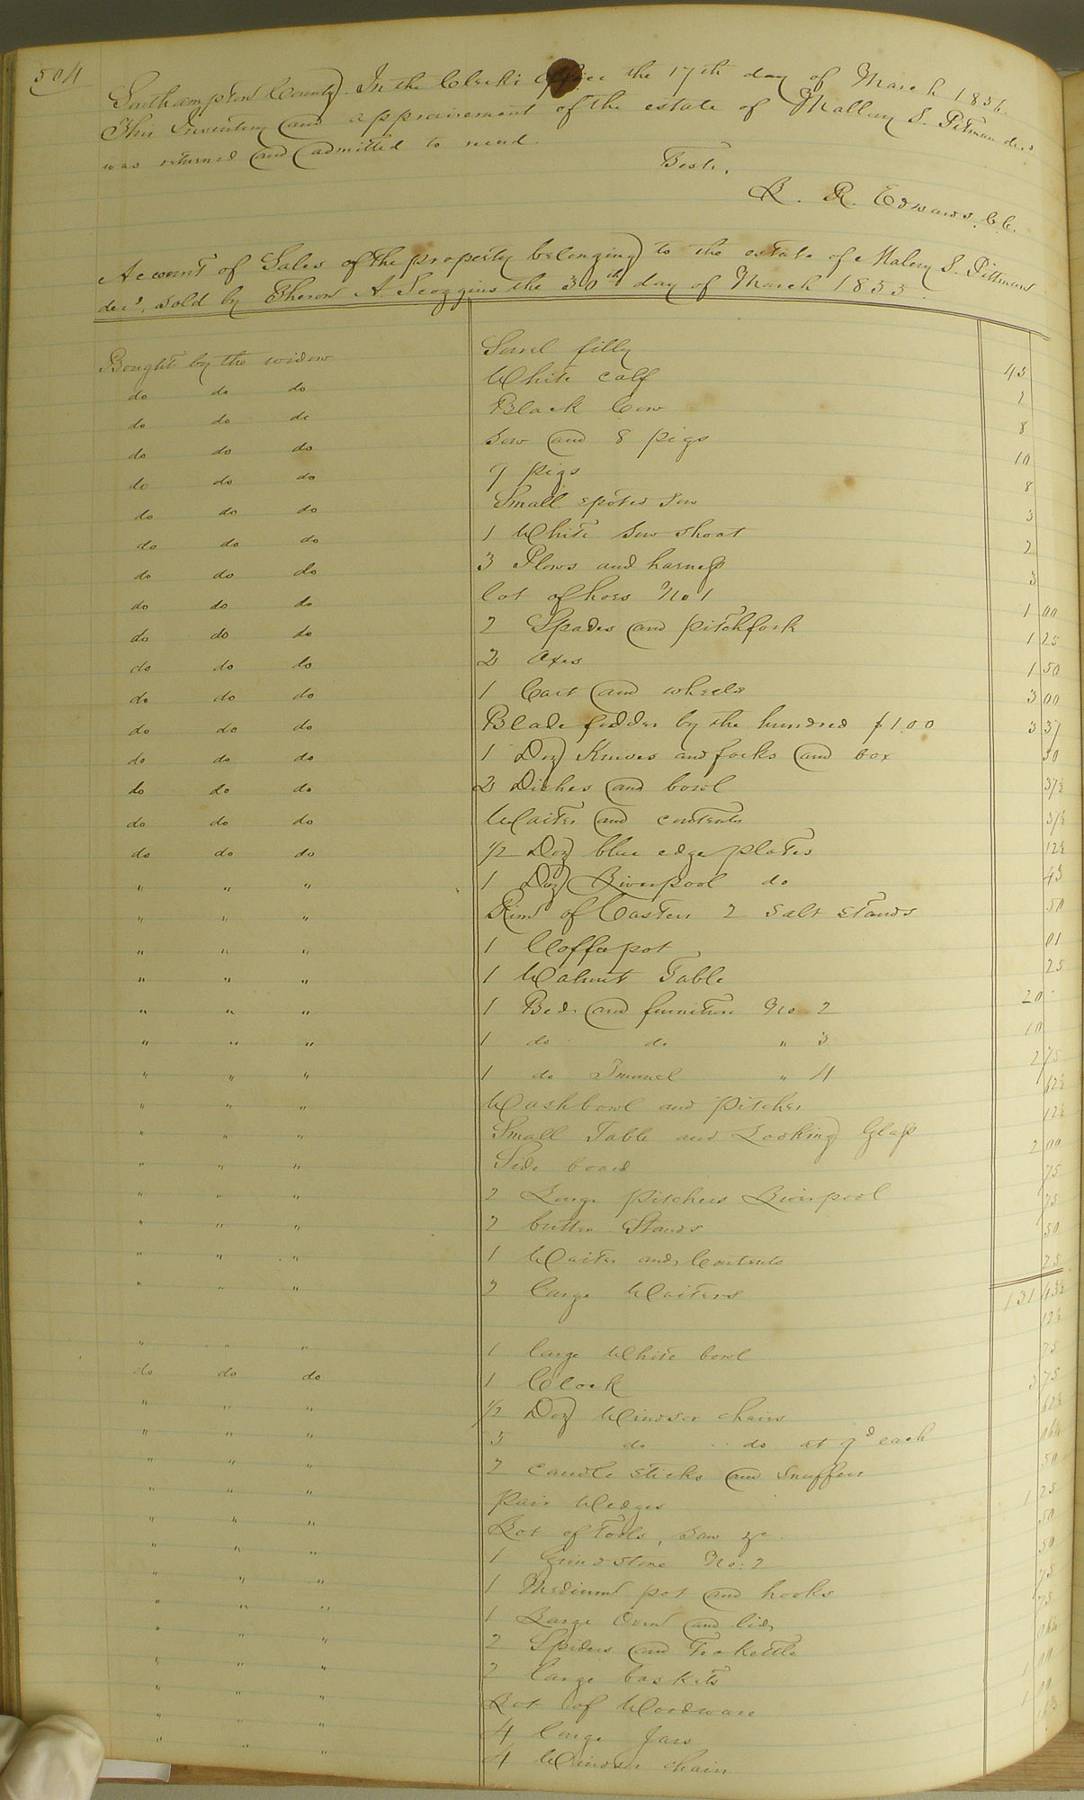 504
Southampton County. In the Clerks office the 17th day of March 1856
This Inventory and appraisement of the estate of Mallery S. Pitman decd
was returned and admitted to record.
Teste,
L. R. Edwards, C.C.
Account of Sales of the property belonging to the estate of Malery S. Pittman
decd, sold by Theron A. Scoggins the 30th day of March 1855.
Bought by the widow Sorrel filly 45
do do do White calf 2
do do do Black Cow 8
do do do Sow and 8 pigs 10
do do do 7 pigs 8
do do do Small spoted Sow 3
do do do 1 White Sow shoat 2
do do do 3 Plows and harness 3
do do do lot of hoes No 1 1 00
do do do 2 Spades and pitchfork 1 25
do do do 2 Axes 1 50
do do do 1 Cart and wheels 3 00
do do do Blade fodder by the hundred $1.00 3 37
do do do 1 Doz Knives and forks and box 50
do do do 2 Dishes and bowl 37½
do do do Waiter and contents 37½
do do do ½ Doz blue edge plates 12½
" " " 1 Doz Liverpool do 45
" " " Rim of Casters 2 Salt stands 50
" " " 1 Coffepot 01
" " " 1 Walnut Table 25
" " " 1 Bed and furniture No 2 20
" " " 1 do do " 3 10
" " " 1 do " 4 2 75
" " " Washbowl and Pitcher 12½
" " " Small Table and Looking Glass 12½
" " " Side board 2 00
" " " 2 Large Pitchers Liverpool 75
" " " 2 butter Stands 75
" " " 1 Waiter and Contents 50
" " " 2 large Waiters 25
131 43½
" " " 1 large White bowl 12½
do do do 1 Clock 75
" " " ½ Doz Windsor chairs 3 75
" " " 3 do do at 7d each 62½
" " " 2 candle sticks and Snuffers
" " " pair Wedges 50
" " " Lot of Tools, Saw &c 1 25
" " " 1 Grindstone No. 2 50
" " " 1 Medium pot and hooks 50
" " " 1 Large Oven and lid 75
" " " 2 Spiders and Teakettle 75
" " " 2 large baskets
" " " Lot of Woodware 1 00
" " " 4 large Jars 1 00
" " " 4 Windsor chairs